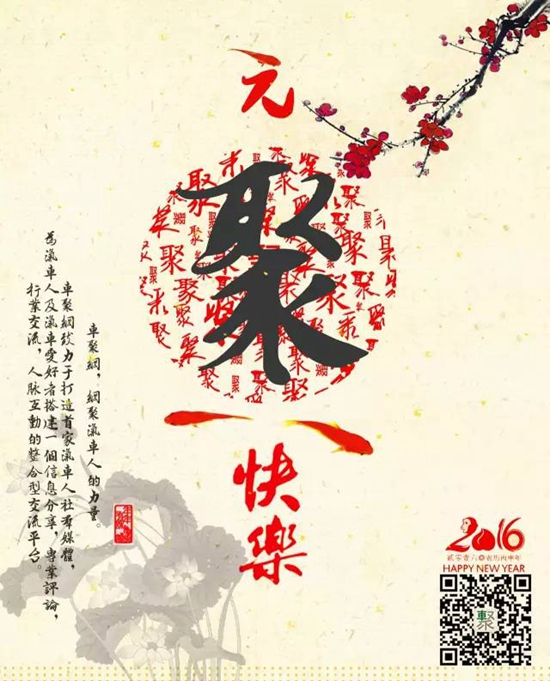 元
聚
快樂
車聚網，網聚滊車人的力量。
車聚網致力于打造首家滊車人社群媒體，
為滊車人及滊車愛好者搭建一個信息分享，專業評論，
行業交流，人脈互動的整合型交流平台。
2016
貳零壹六●農历丙申年
HAPPY NEW YEAR